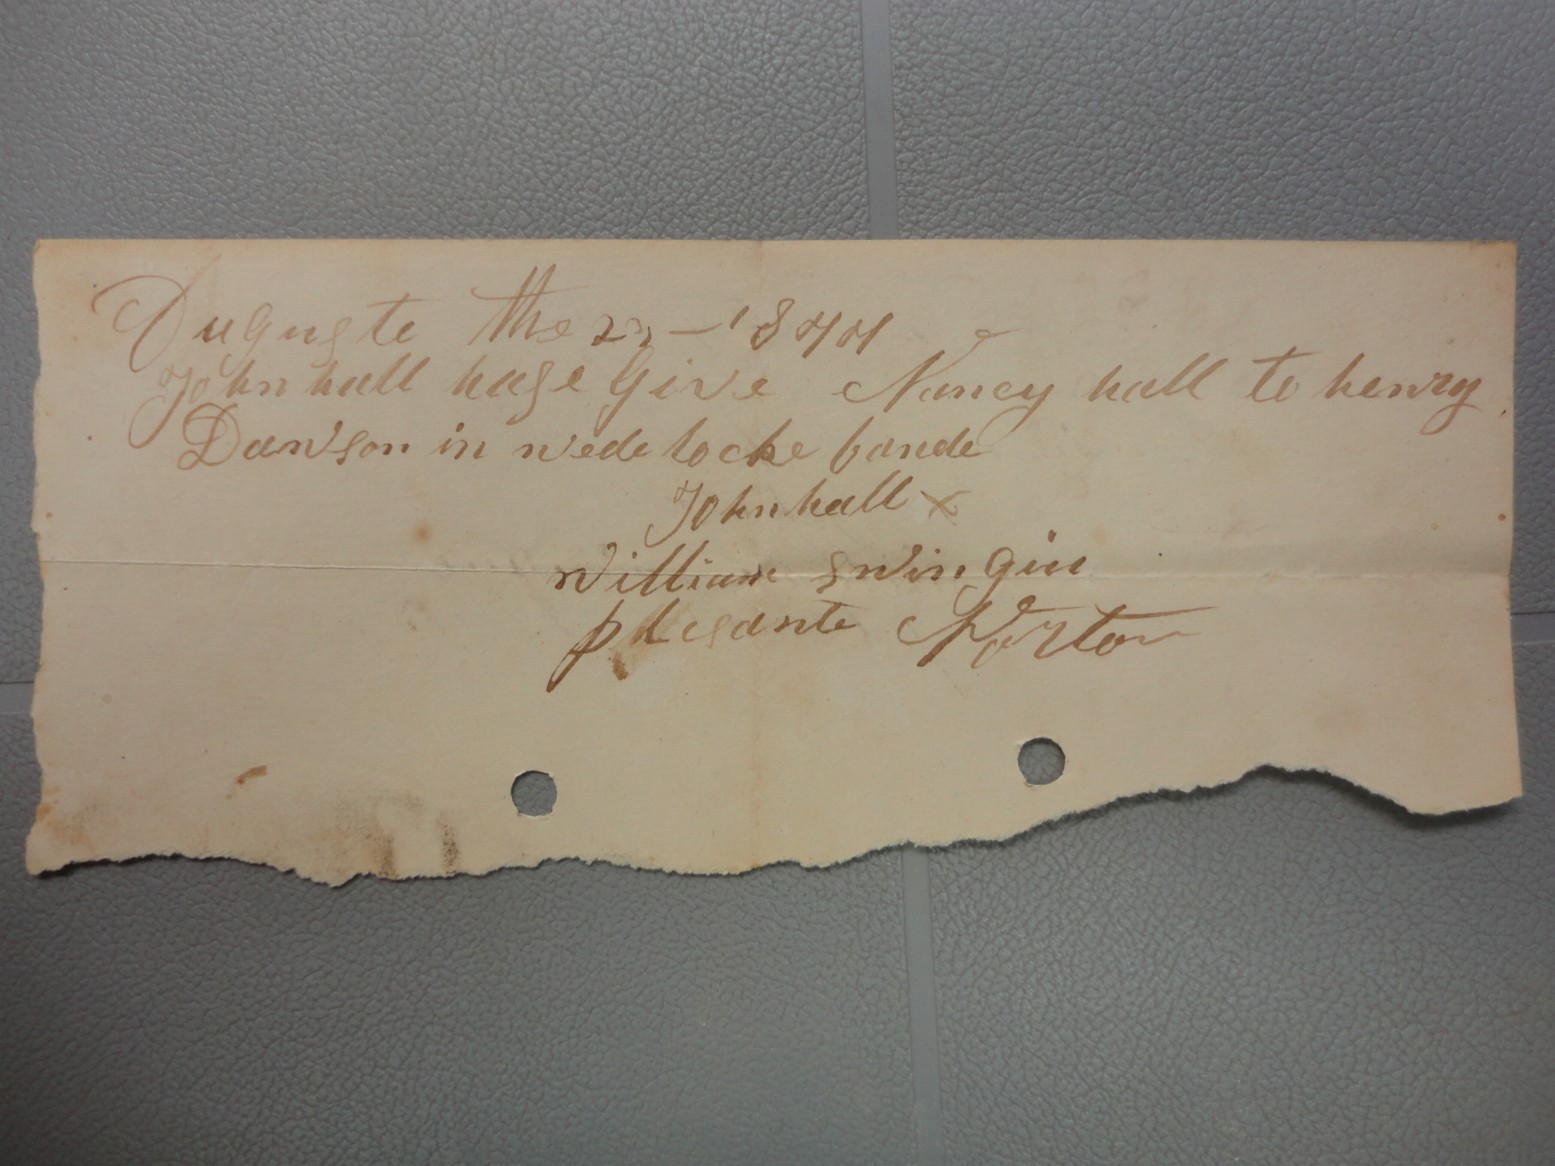 Auguste the 22 - 1844
John hall hase Give Nancy hall to henry
Dawson in wede locke bande
John hall x
William swingin
plesante Norton